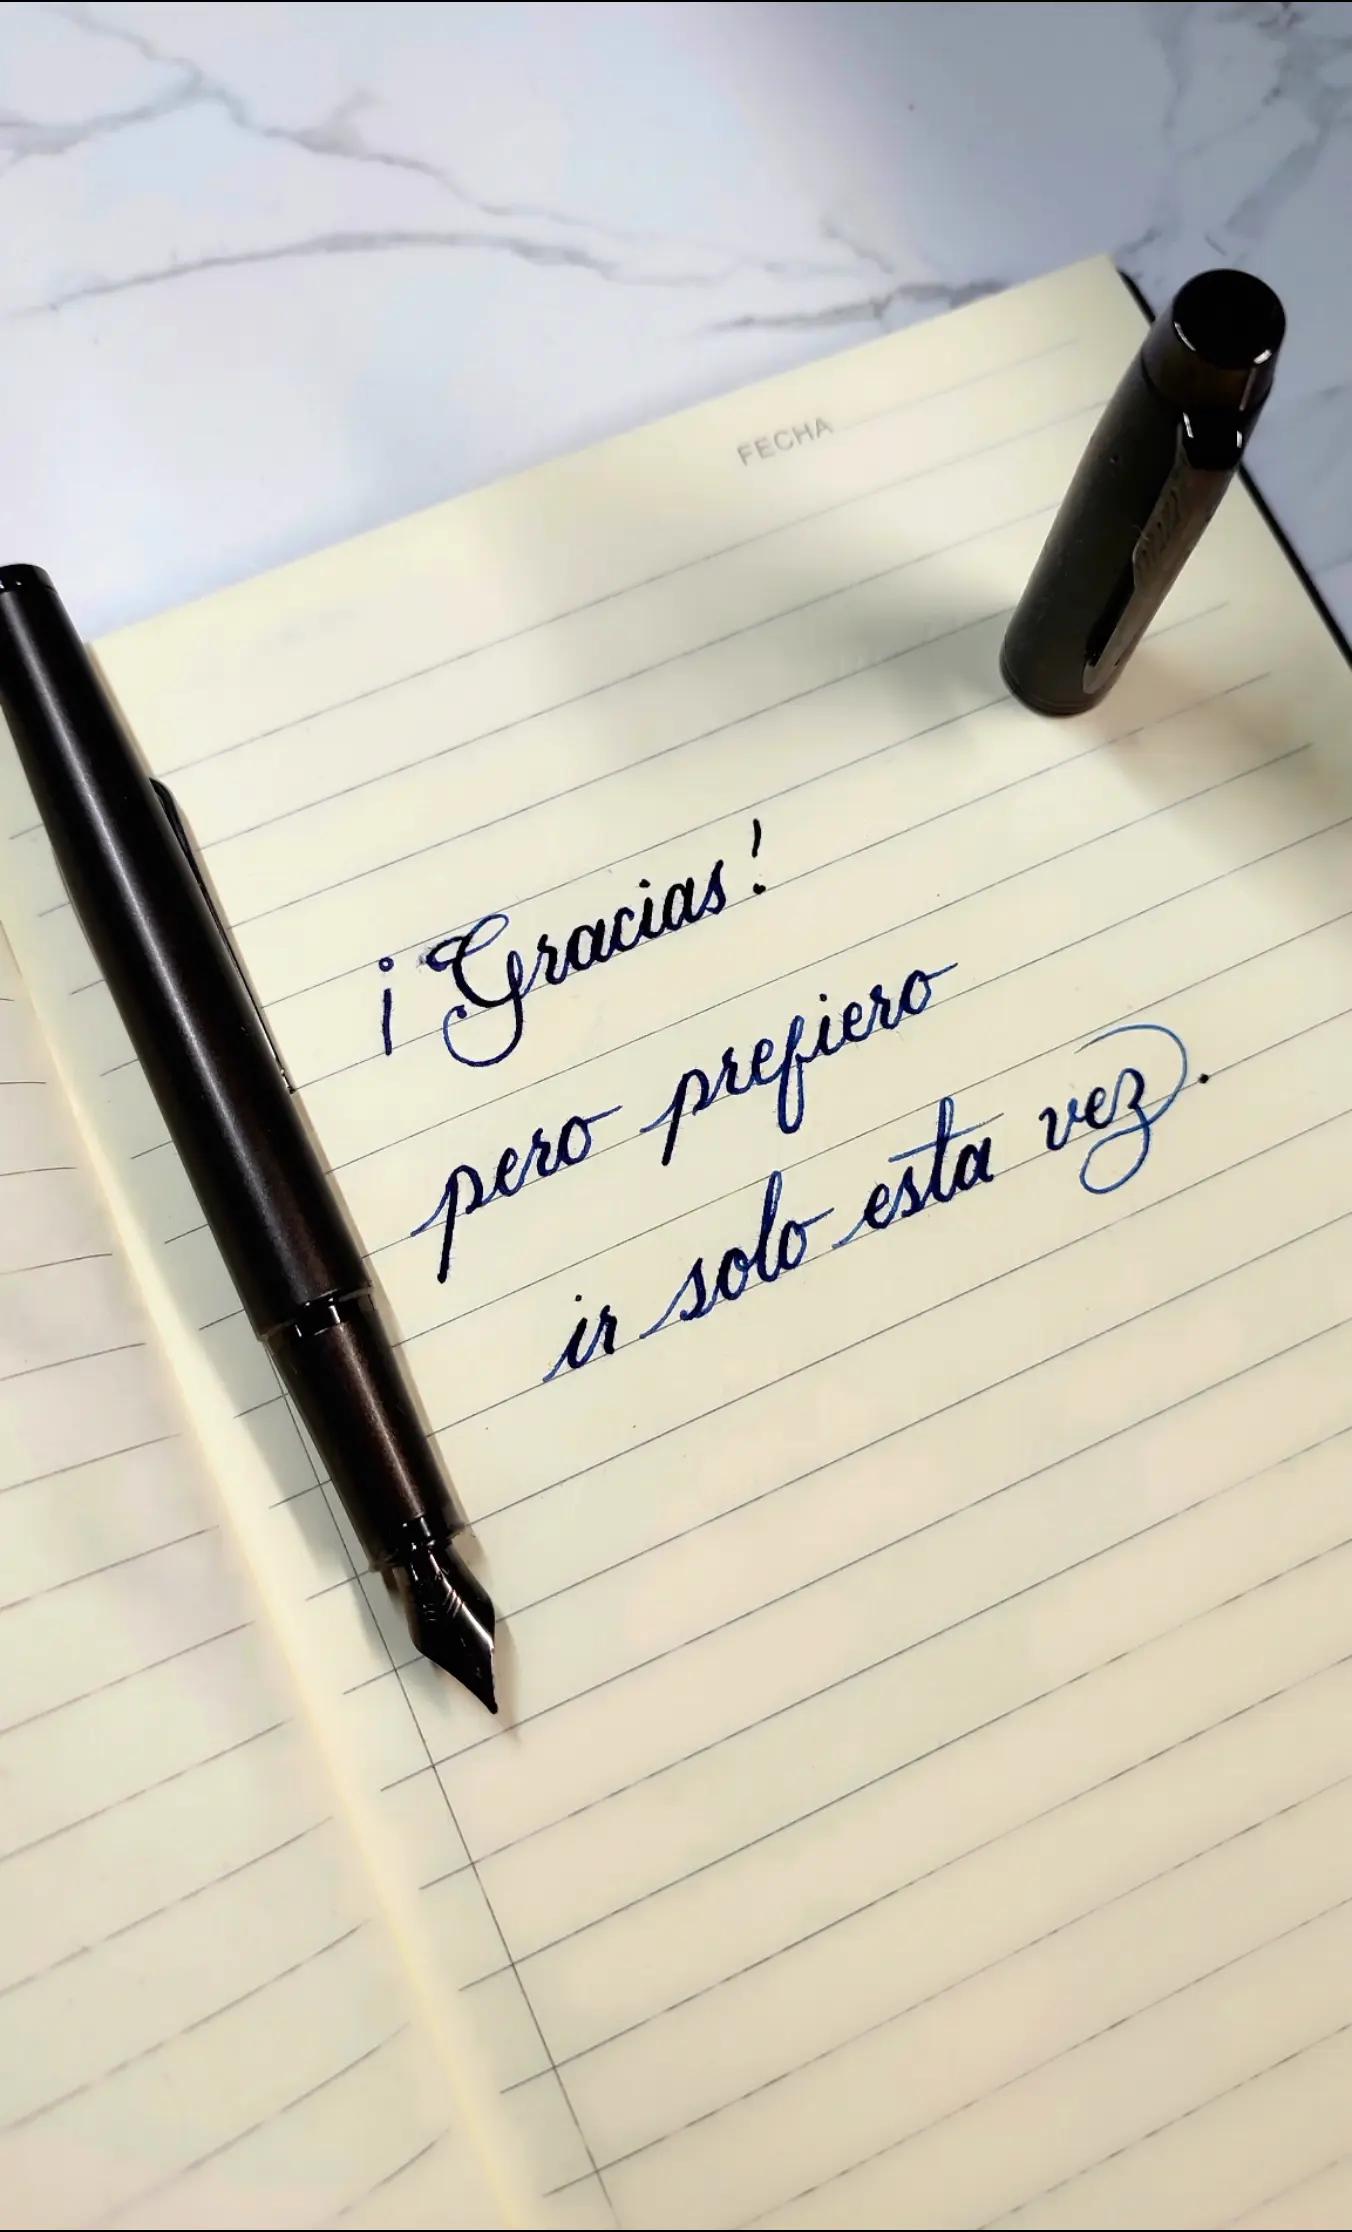 FECHA
¡Gracias!
pero prefiero
ir solo esta vez.